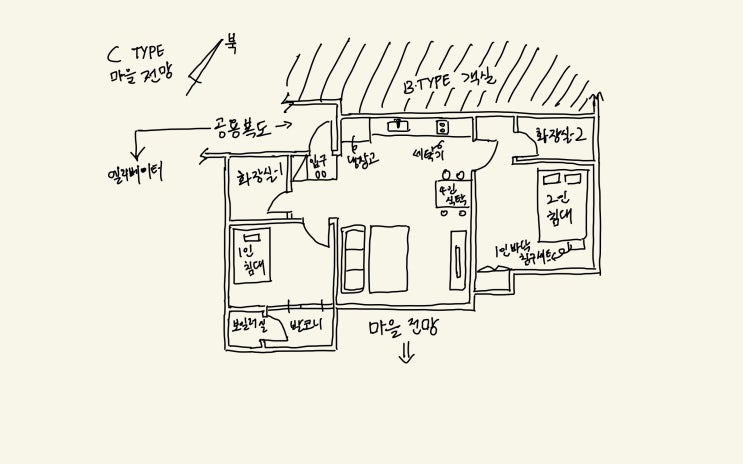 C TYPE
마을 전망
북
B·TYPE 객실
공용복도
엘리베이터
화장실-1
입구
냉장고
세탁기
화장실-2
4인
식탁
2인
침대
1인
침대
1인 바닥
침구세트
보일러실
발코니
마을 전망